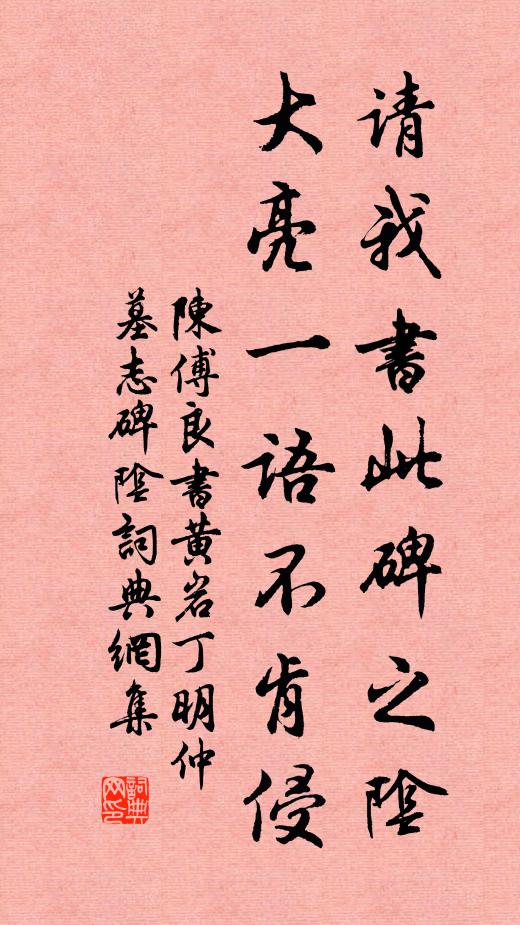 请我書此碑之陰
大亮一語不肯侵
陳傅良書黄岩丁明仲
墓志碑陰詞典網集
詞典网印